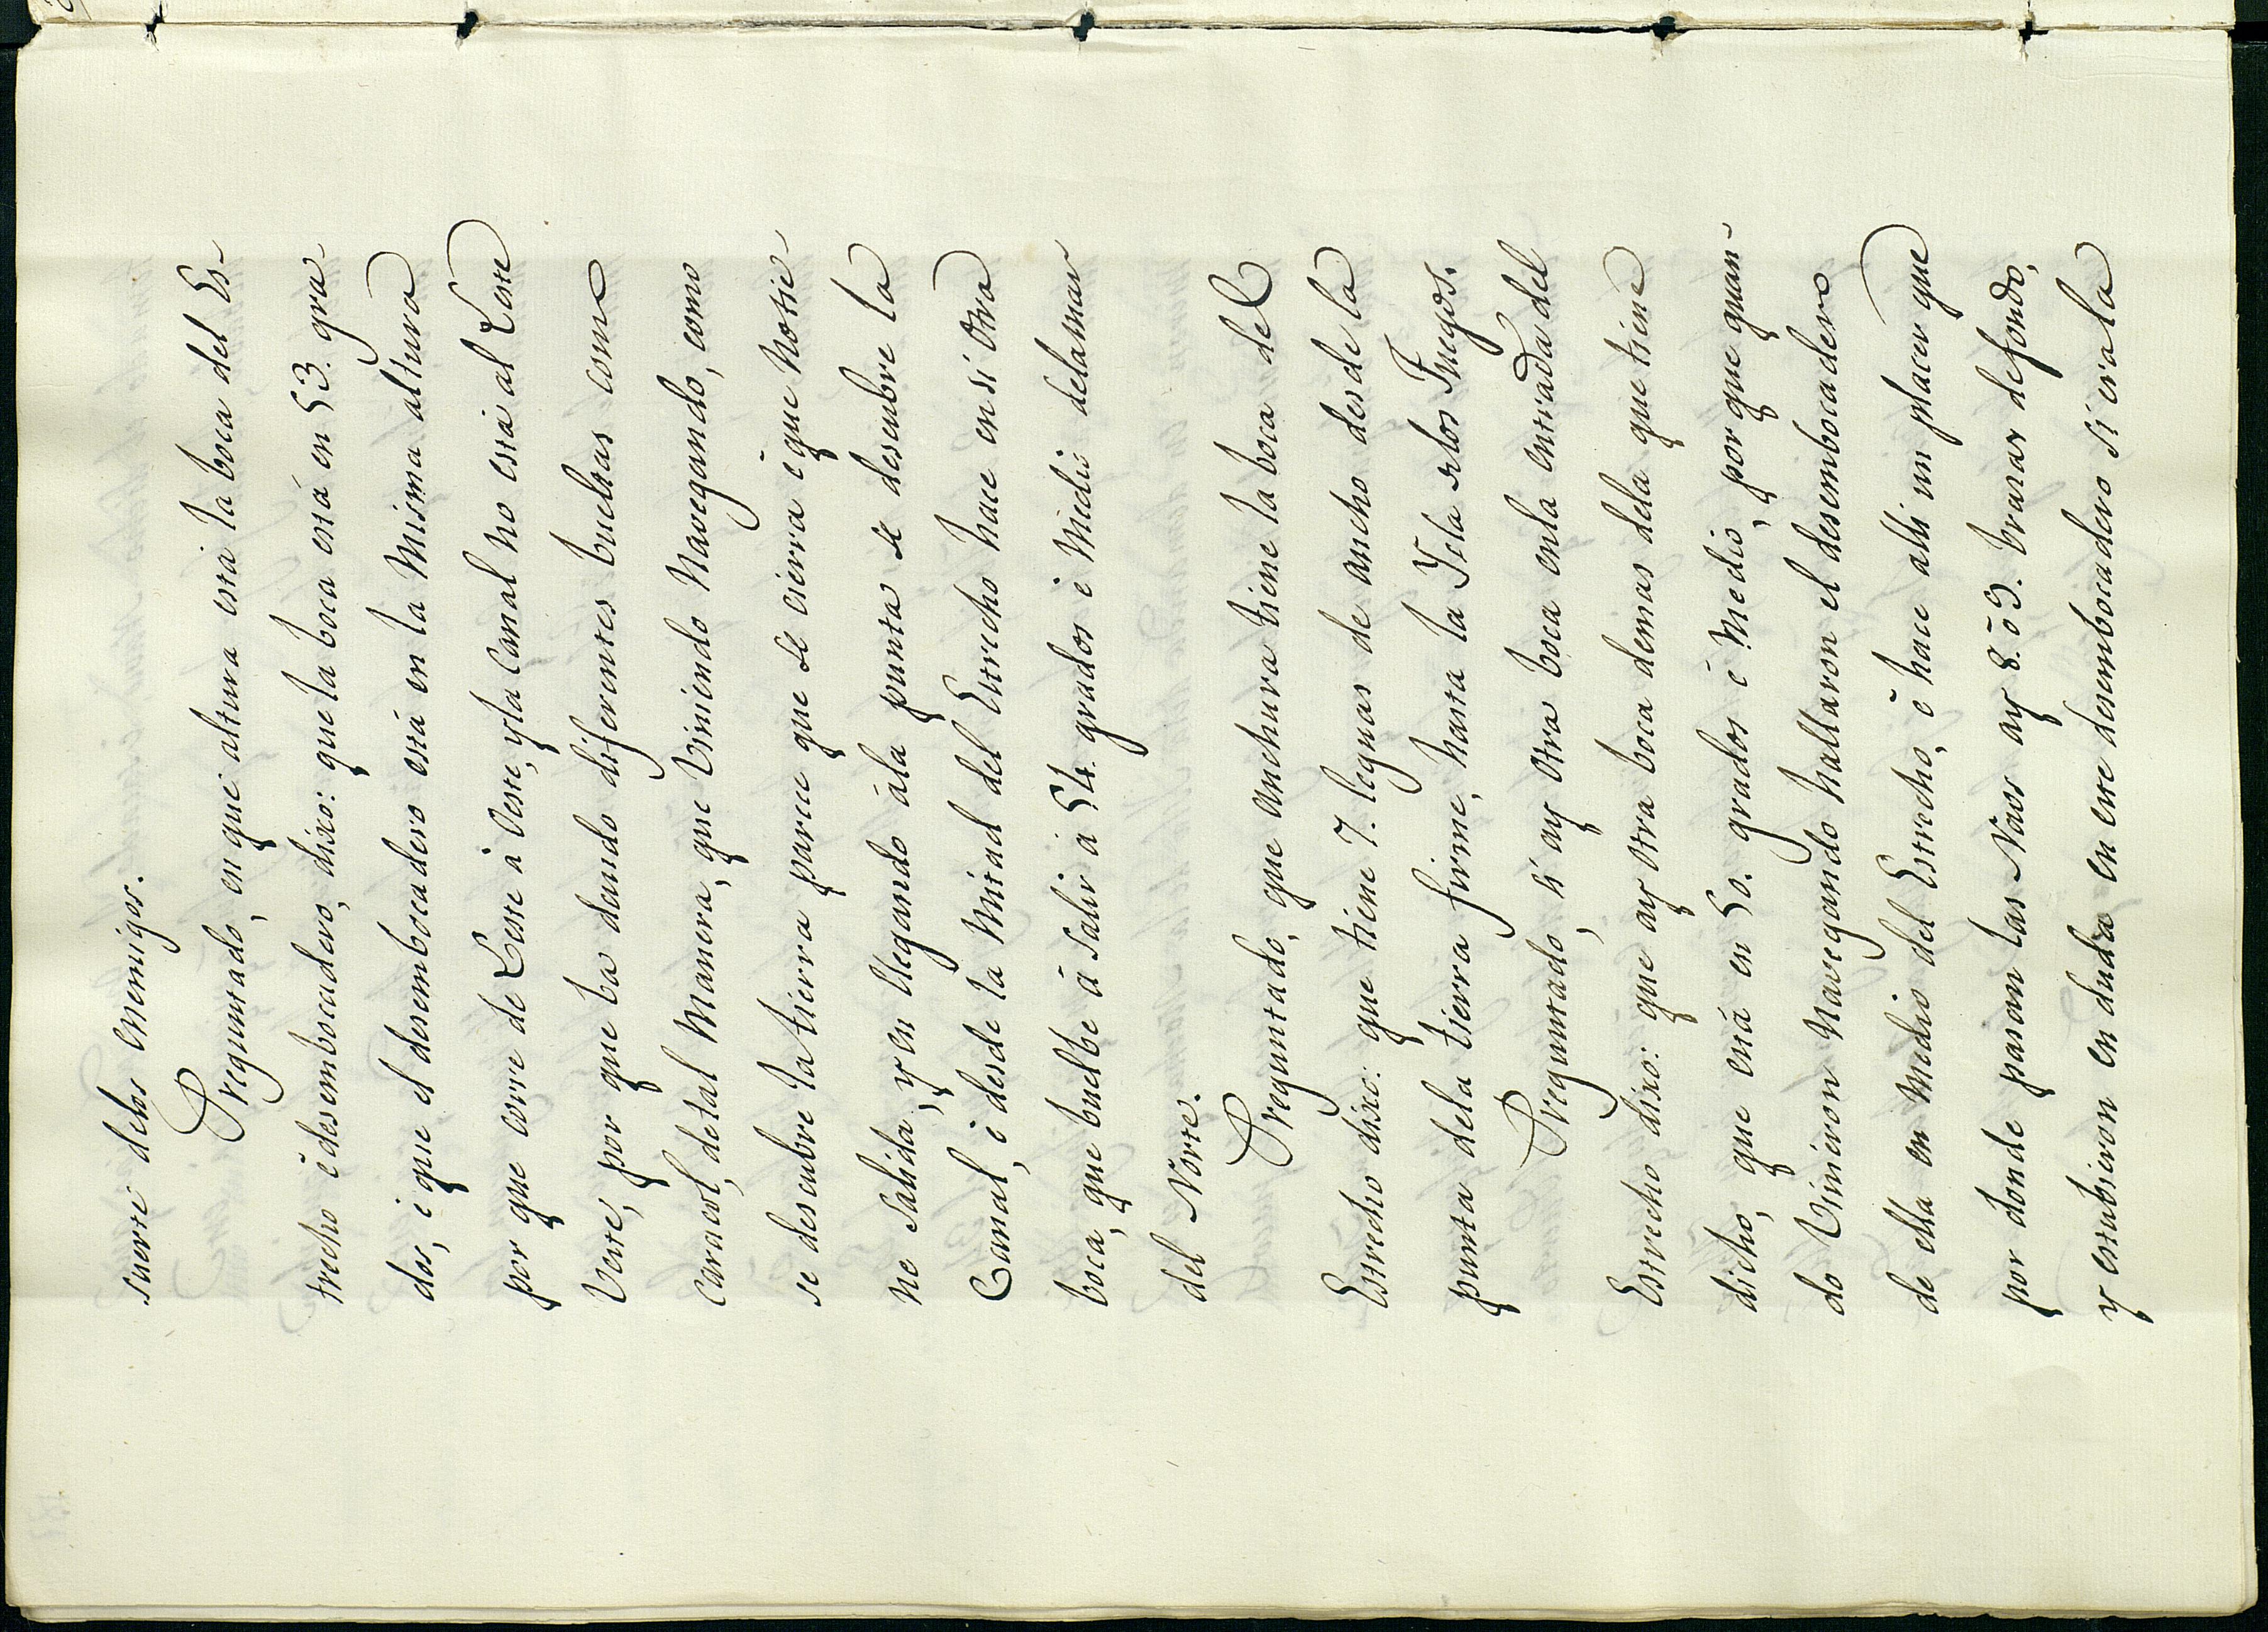 suerte delos enemigos.
Preguntado, en que altura está la boca del Es-
trecho è desembocadero, dixo: que la boca está en 53. gra
dos, è que el desembocadero está en la Misma altura
por que corre de Leste à Oeste, y la Canal no está al Leste
Veste, por que ba dando diferentes bueltas come
caracol, detal Manera, que Viniendo Navegando, como
se descubre la tierra parece que se cierra è que No tie
ne Salida, y en llegando àla punta se descubre la
Canal, è desde la Mitad del Estrecho hace en sí Otra
boca, que buelbe à Salir à 54. grados è Medio delamar
del Norte.
Preguntado, que anchura tiene la boca del
Estrecho dixo: que tiene 7. leguas de ancho desde la
punta dela tierra firme, hasta la Isla delos Fuegos.
Preguntado, si ay Otra boca enla entrada del
Estrecho dixo: que ay Otra boca demas dela que tiene
dicho, que está en 50. grados è Medio, por que quan-
do Vinieron Navegando hallaron el desembocadero
de ella en Medio del Estrecho, è hace alli un placer que
por donde pasan las Naos ay 8. ò 9. brazas de fondo,
y estubieron en duda en este desembocadero si era la